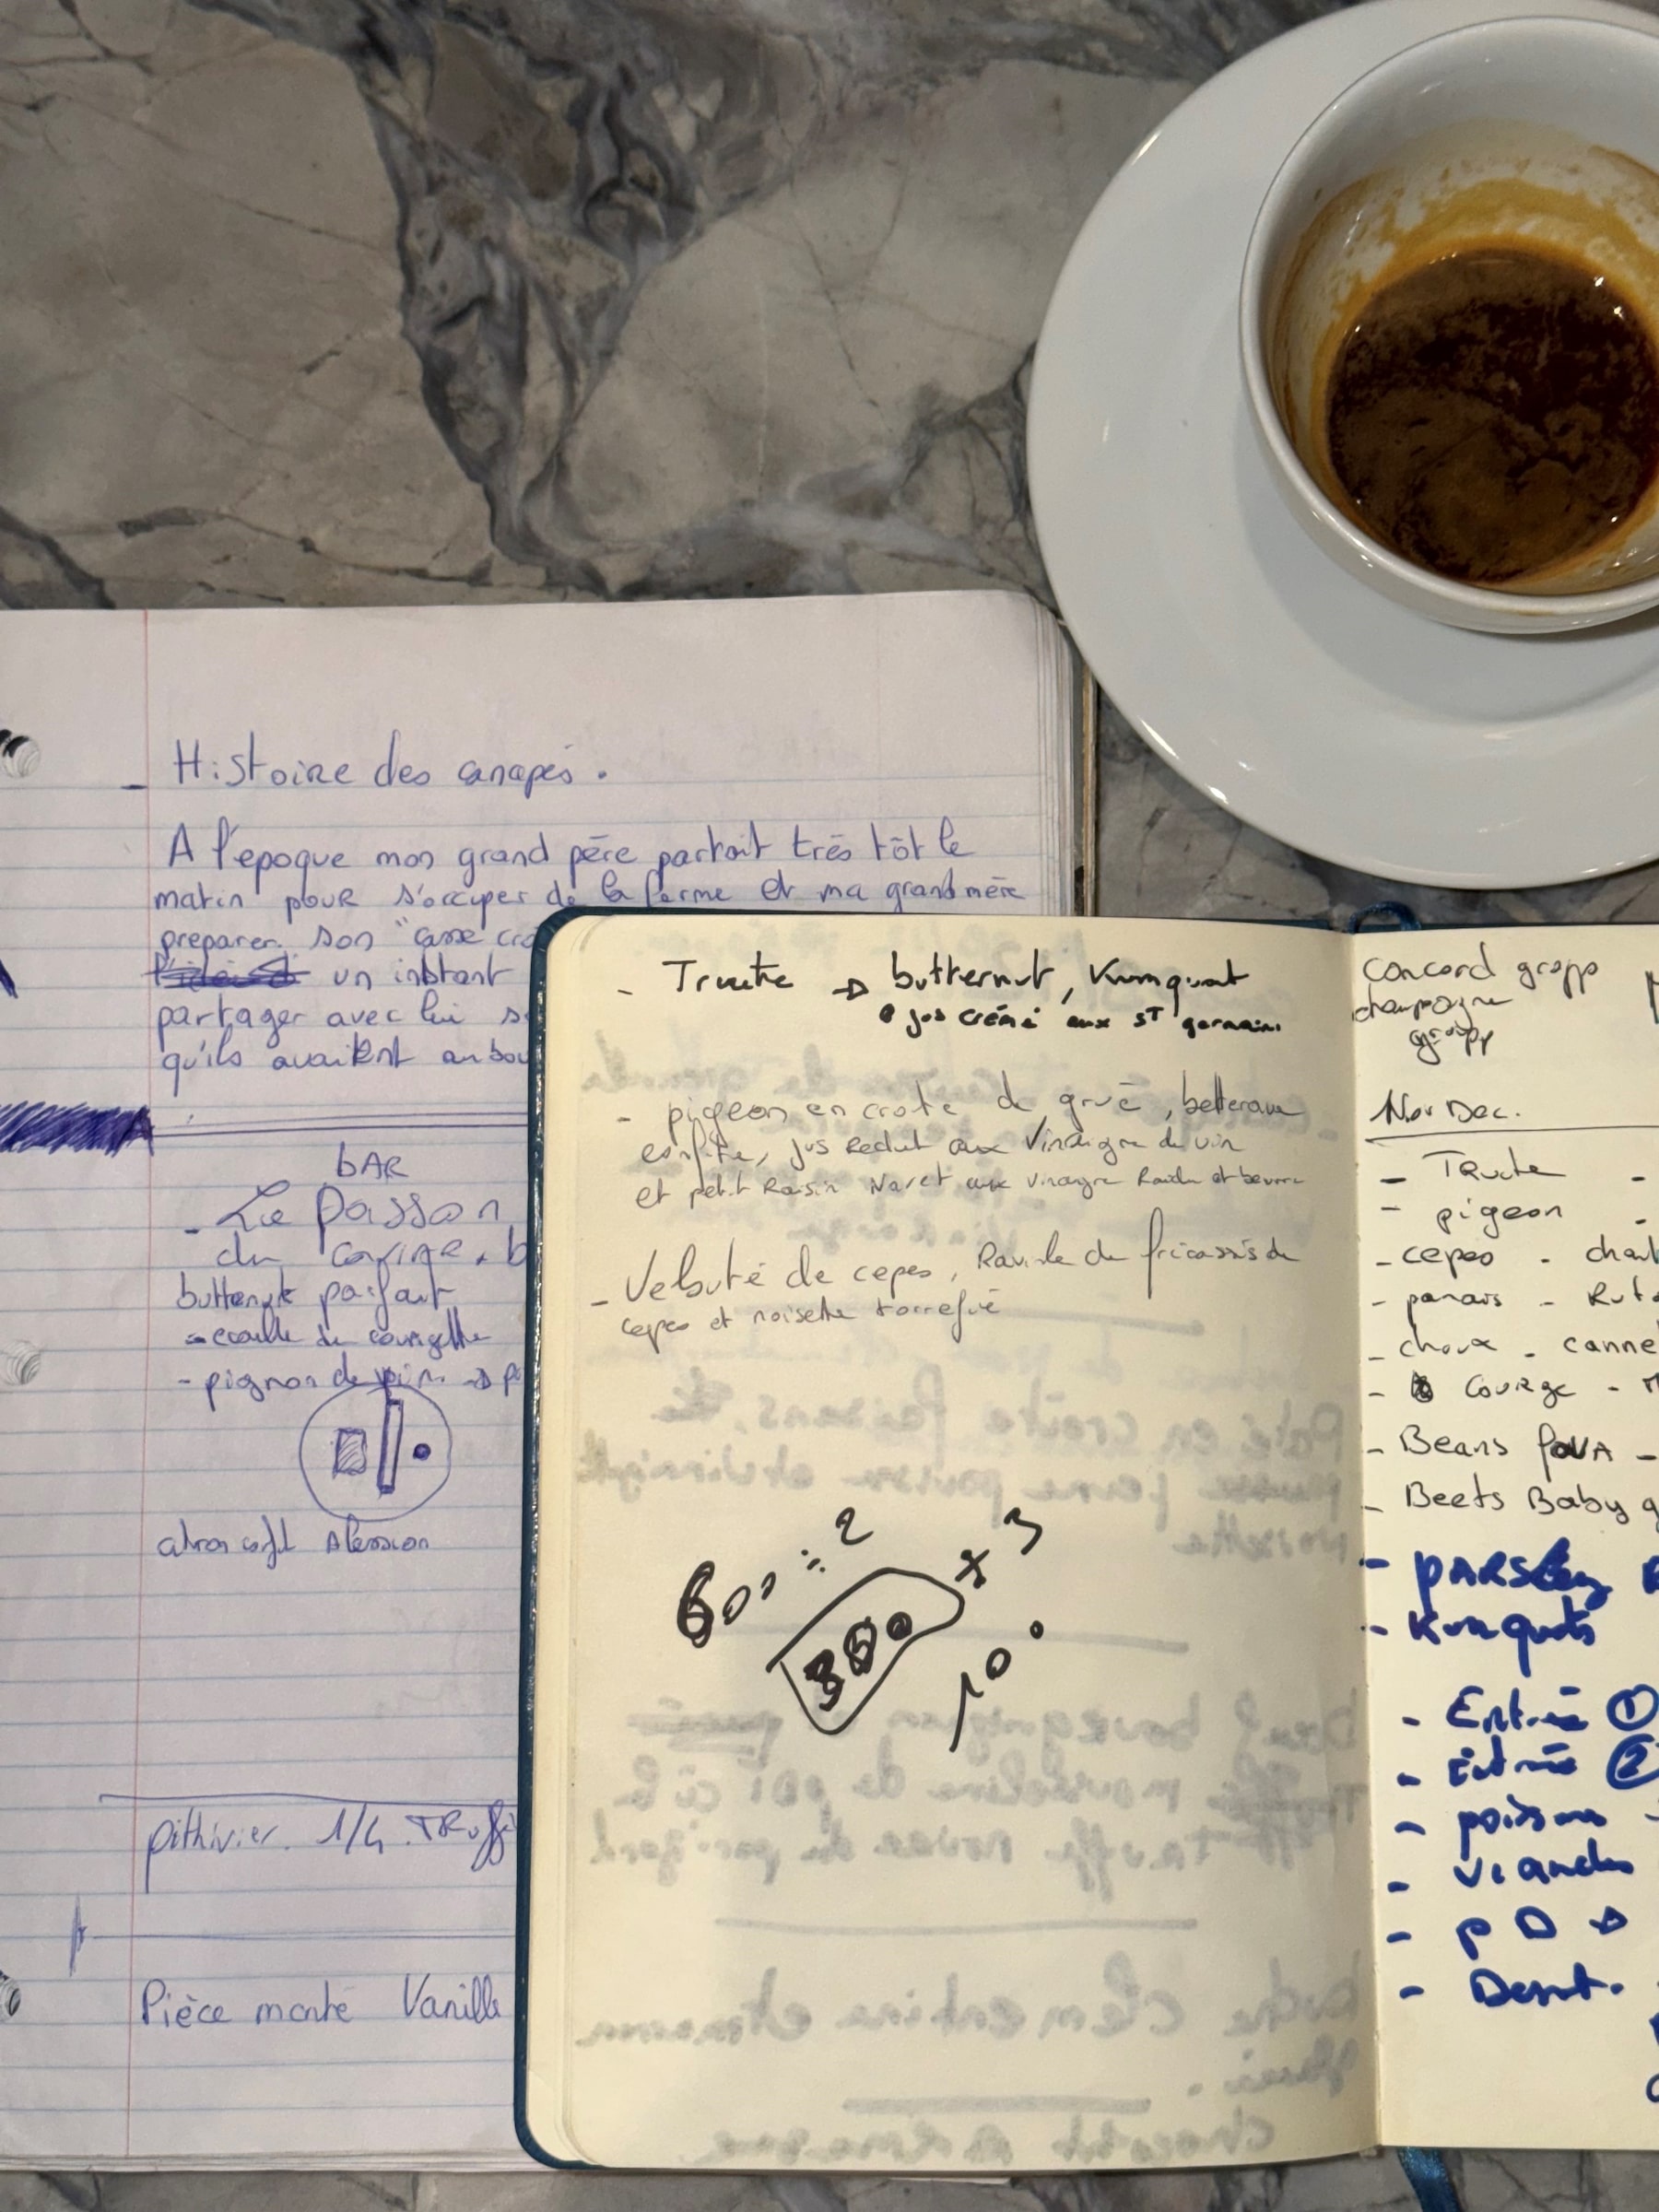 - Histoire des canapés.
A l'époque mon grand père partait très tôt le
matin pour s'occuper de la ferme et ma grand mère
preparer son "casse cro
un instant
partager avec lui s
qu'ils avaitent au bou
bAR
butternut parfait
- ecaille de courgette
- pignon de pin
pithivier. 1/4. TRuff
Pièce monté Vanille
- Truite → butternut, Kumquat
jus crémé aux St germain
- pigeon en crote de grué, betterave
confite, jus Reduit aux Vinaigre de vin
et petit Raisin Navet aux vinaigre Raidu et beurre
- Velouté de cepes, Raviole de fricassés de
cepes et noisette torrefié
600 ÷ 2
300 x 3
100
concord grapp
champagne
grapp
Nov Dec.
- Truite -
- pigeon -
- cepes - chat
- panais - Ruta
- choux - canne
- Courge -
- Beans fava -
- Beets Baby g
- PARSley
- Kumquats
- Entrée ①
- Entrée ②
- poisson
- viandes
- PD →
- Desert.